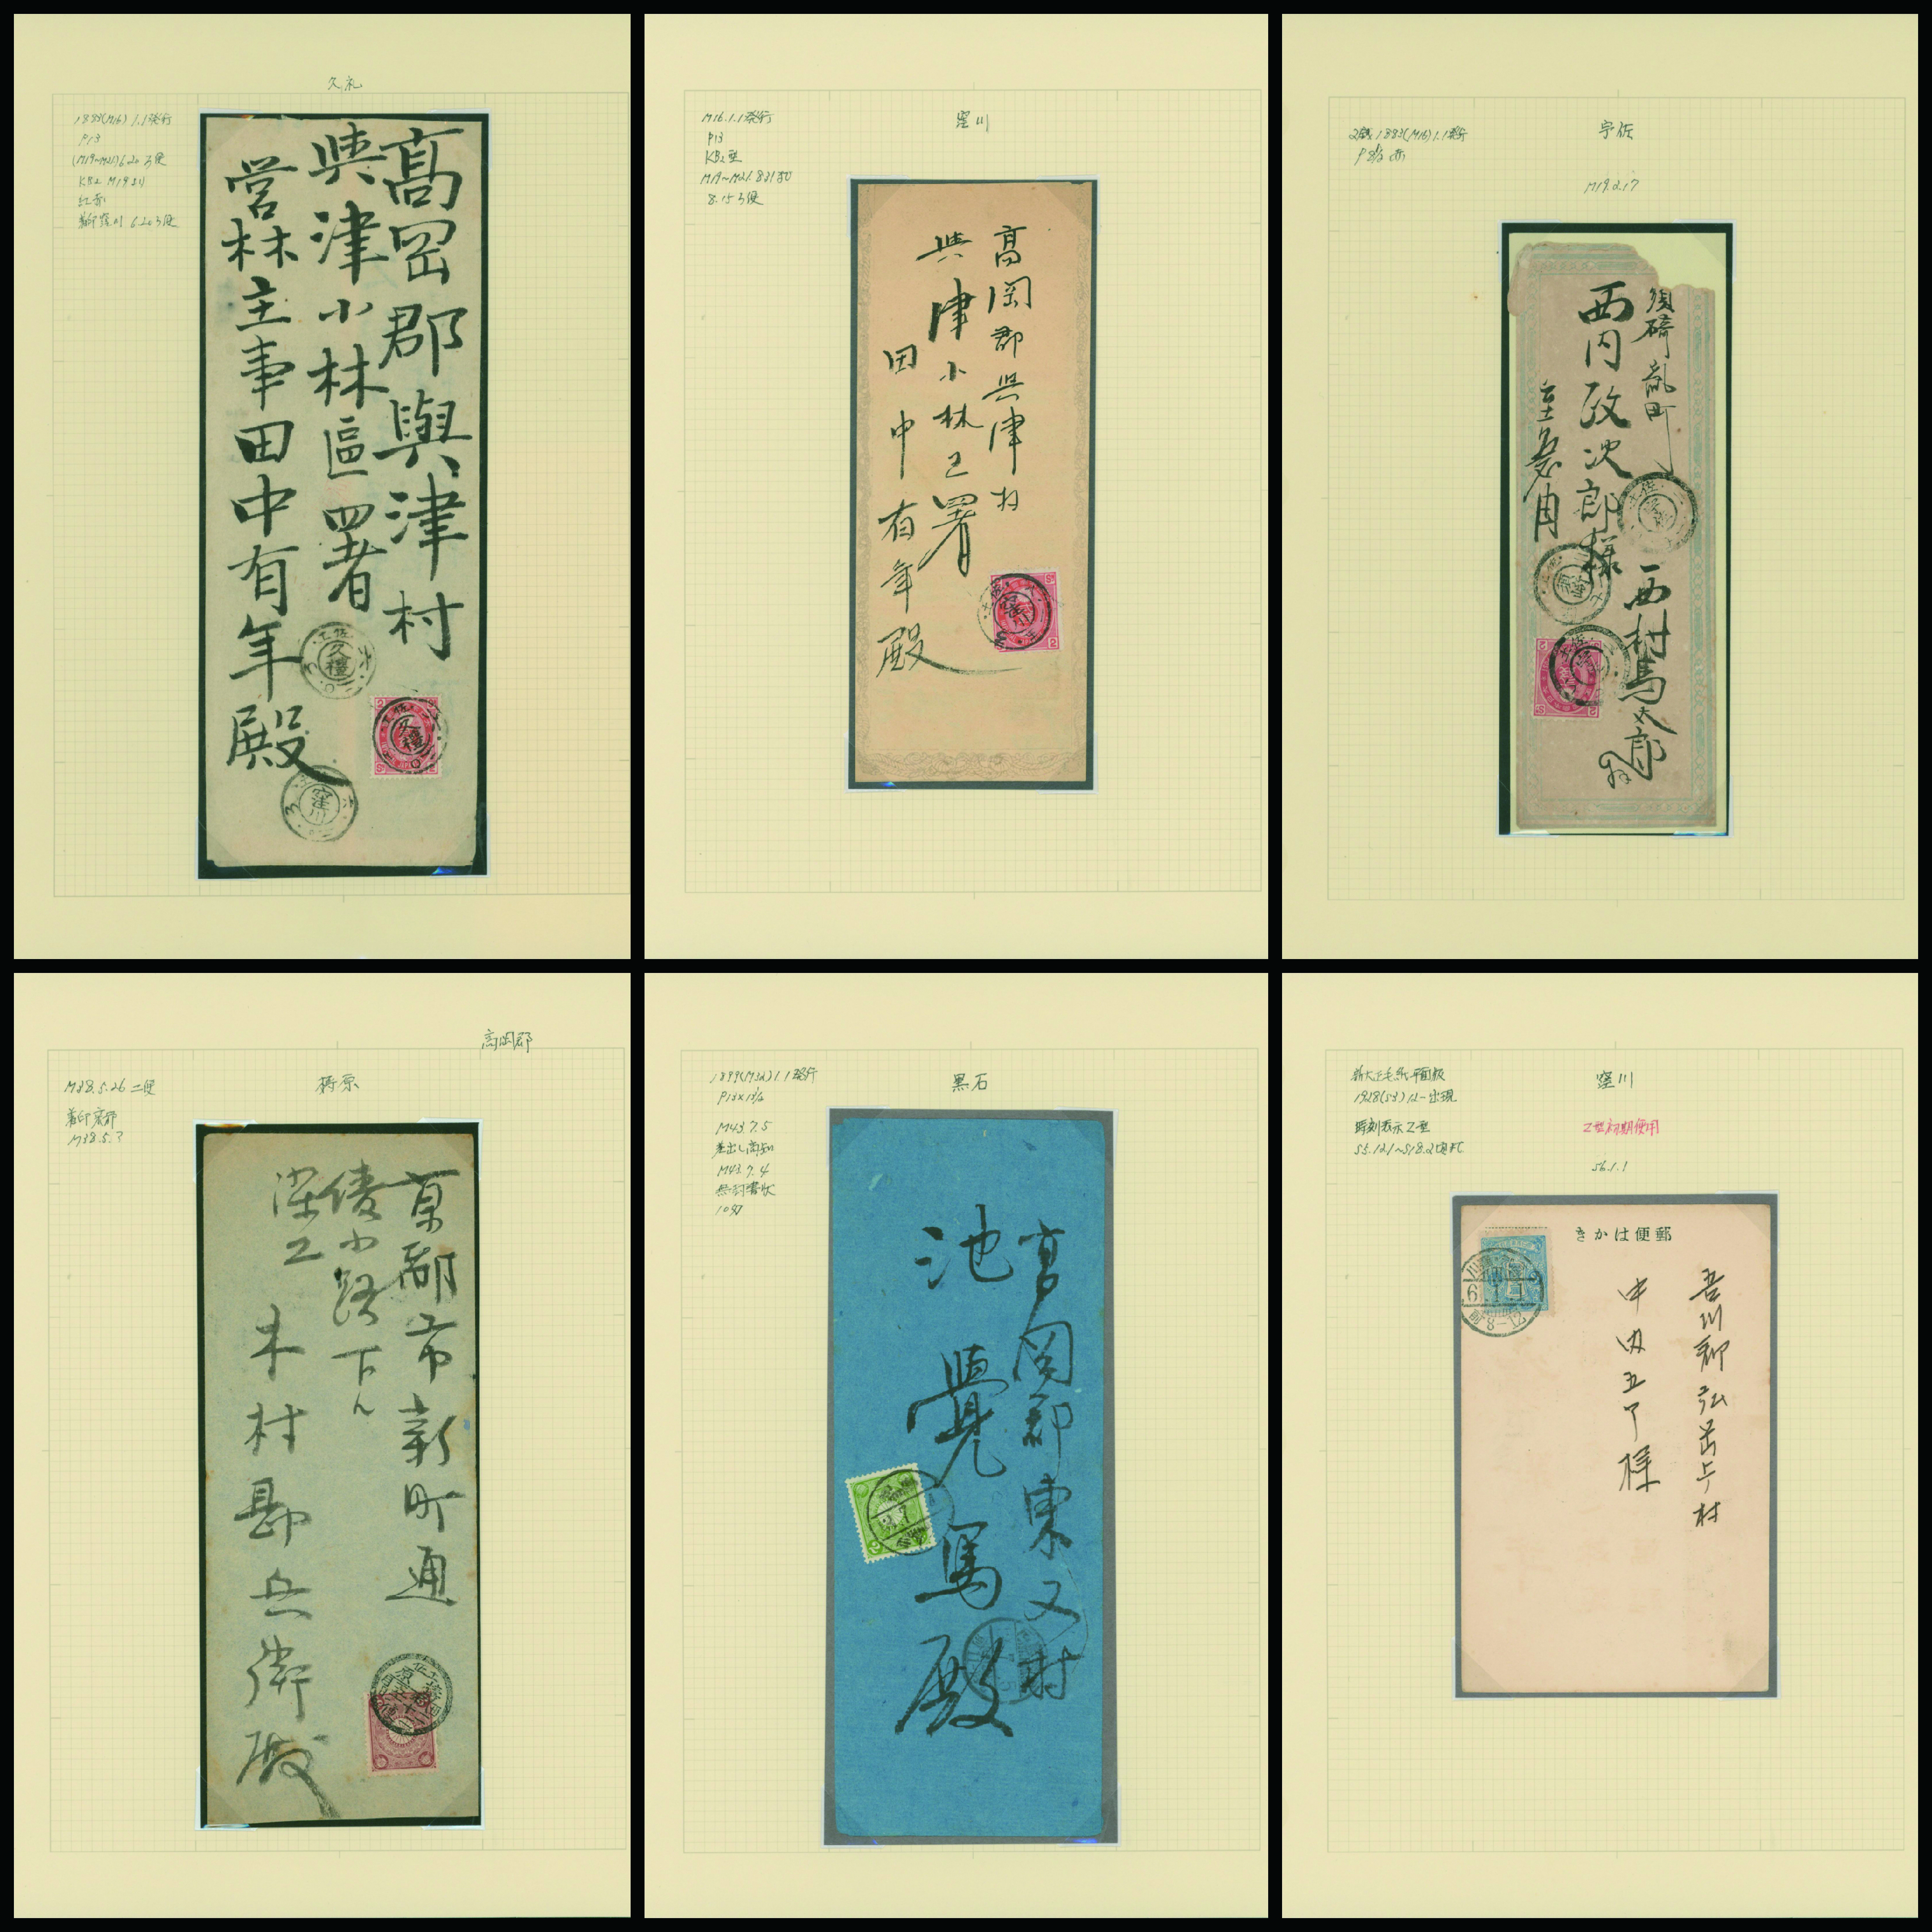 久礼
1883(M16)1.1発行
P13
(M19~M21)6.20 3便
KB2 M19より
紅赤
着印窪川 6.20 3便
高岡郡興津村
興津小林區署
営林主事田中有年殿
土佐
久禮
土佐
久禮
窪川
M16.1.1発行
P13
KB2型
8.15 3便
窪川
高岡郡興津村
興津小林区署
田中有年殿
2銭 1883(M16)1.1発行
宇佐
M19.2.17
須崎
西内政次郎様
至急用
西村馬太郎
高岡郡
M38.5.26 二便
梼原
着印京都
M38.5.?
京都市新町通
綾小路下ル
木村勘兵衛殿
1899(M32)1.1発行
黒石
M43.7.5
差出し高知
M43.7.4
無封書状
10匁
高岡郡東又村
池 覺馬殿
新大正毛紙平面版
1928(S3)12-出現
窪川
時刻表示Z型
Z型初期使用
S6.1.1
郵便はかき
6.1.1
前8-12
吾川郡弘岡上村
様